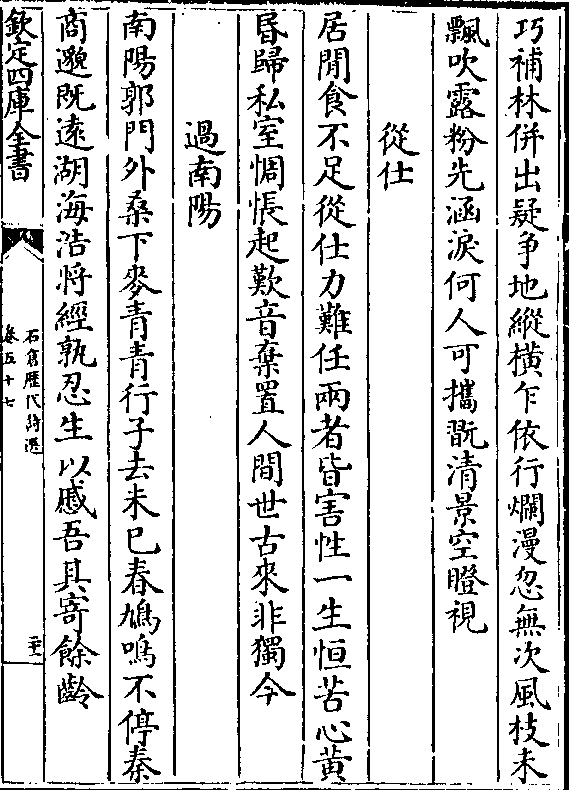 巧補林併出疑争地縱横乍依行爛漫忽無次風枝未
飄吹露粉先涵淚何人可攜翫清景空瞪視
從仕
居閒食不足從仕力難任兩者皆害性一生恒苦心黄
昏歸私室惆悵起歎音棄置人間世古來非獨今
過南陽
南陽郭門外桑下麥青青行子去未已春鳩鳴不停秦
商邈既遠湖海浩將經孰忍生以慼吾其寄餘齡
欽定四庫全書
石倉歷代詩選
卷五十七
二十